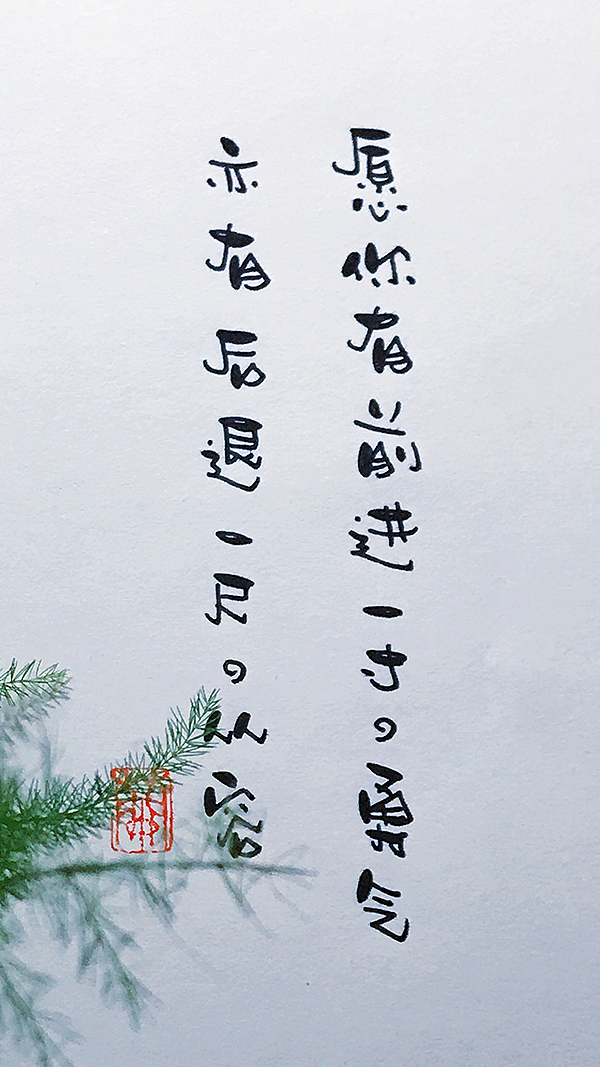 愿你有前进一寸の勇气
亦有后退一尺の从容